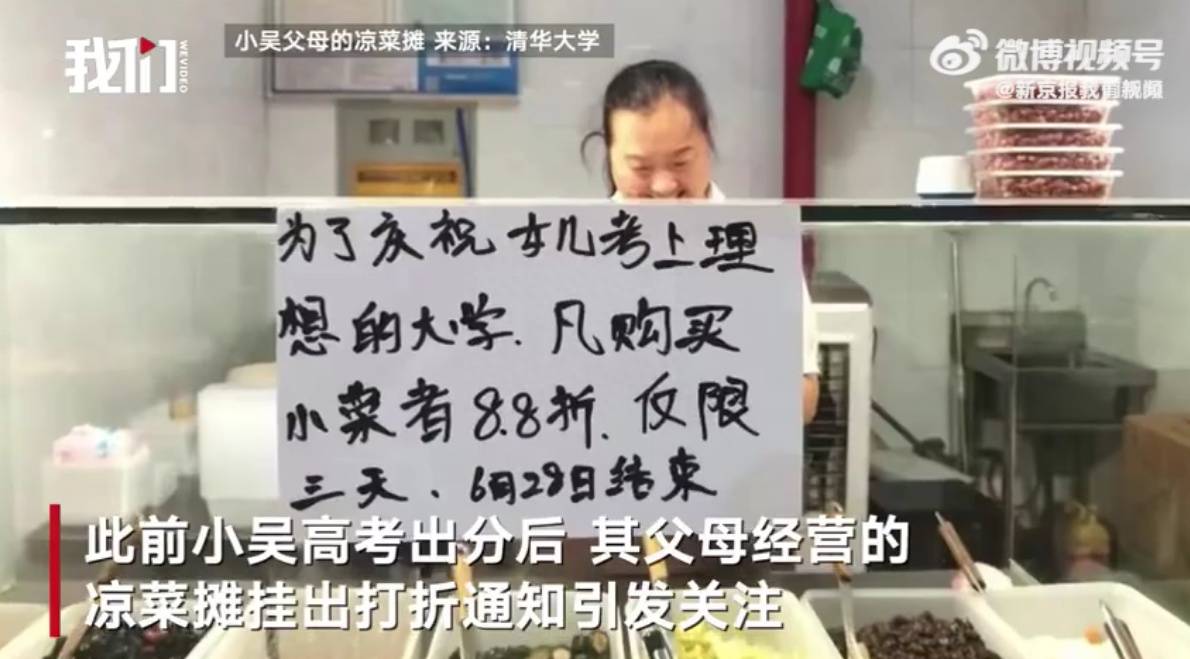 我们
WEVIDEO
小吴父母的凉菜摊 来源：清华大学
微博视频号
@新京报我们视频
为了庆祝女儿考上理
想的大学、凡购买
小菜者8.8折、仅限
三天、6月28日结束
此前小吴高考出分后 其父母经营的
凉菜摊挂出打折通知引发关注